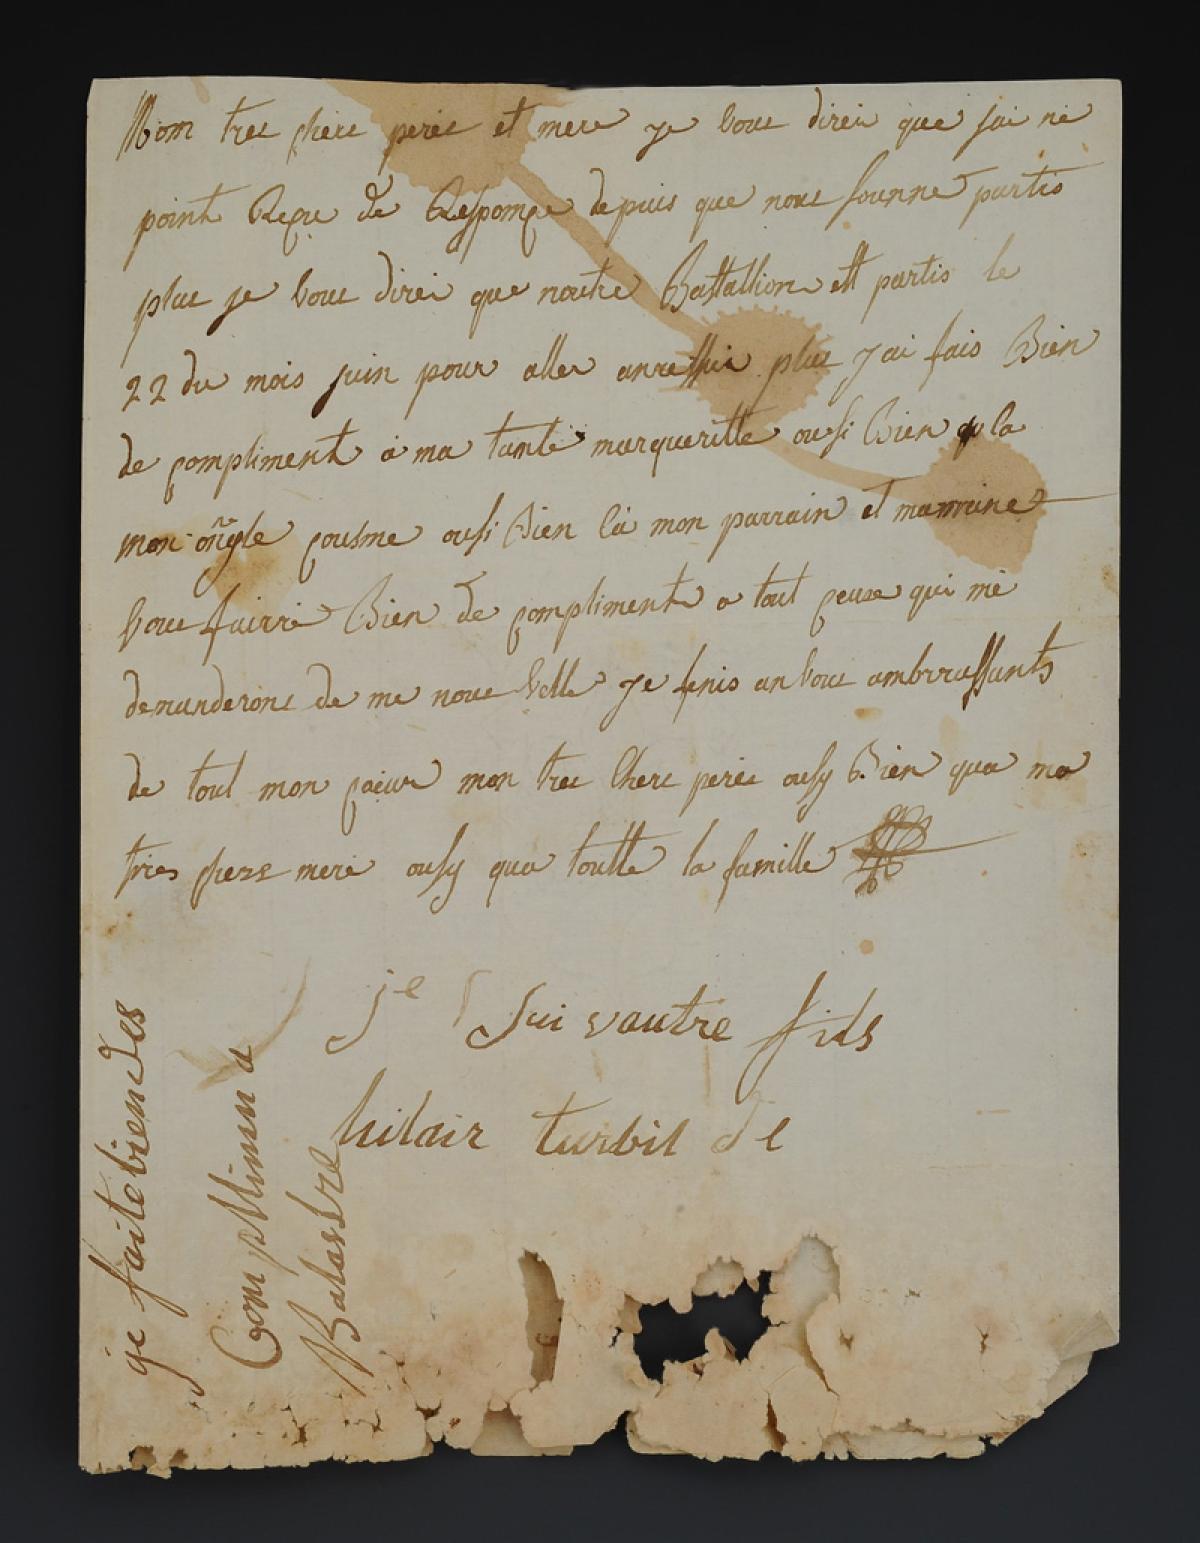 Mom tres chere perес et mere je vous direi que jai ne
point Reçue de Responçe depuis que nous somme partis
plus je vous direi que noutre Battallion ett partis le
22 du mois juin pour aller plus jai fais Bien
de compliment a ma tante marqueritte ousi Bien qula
mon ongle cousme ousi Bien la mon parrain et marraine
vous fairré Bien de compliment a tout ceuxe qui me
demanderons de me nouvelle je fenis an vous ambrrassants
de tout mon coeur mon tres chere perес ousy Bien qua ma
tries chere mere ousy qua toutte la famille
je sui vautre fids
hilair turbil de
ge faite bien des
Complimen a
Balassre